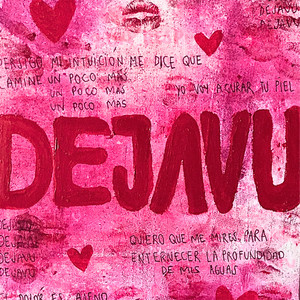 PERSIGO MI INTUICIÓN ME DICE QUE
CAMINE UN POCO MÁS
UN POCO MAS
UN POCO MAS
DEJAVU
DEJAVU
YO VOY A CURAR TU PIEL
DEJAVU
DEJAVU
DEJAVU
DEJAVU
QUIERO QUE ME MIRES PARA
ENTERNECER LA PROFUNDIDAD
DE MIS AGUAS
DOLOR ES AJENO